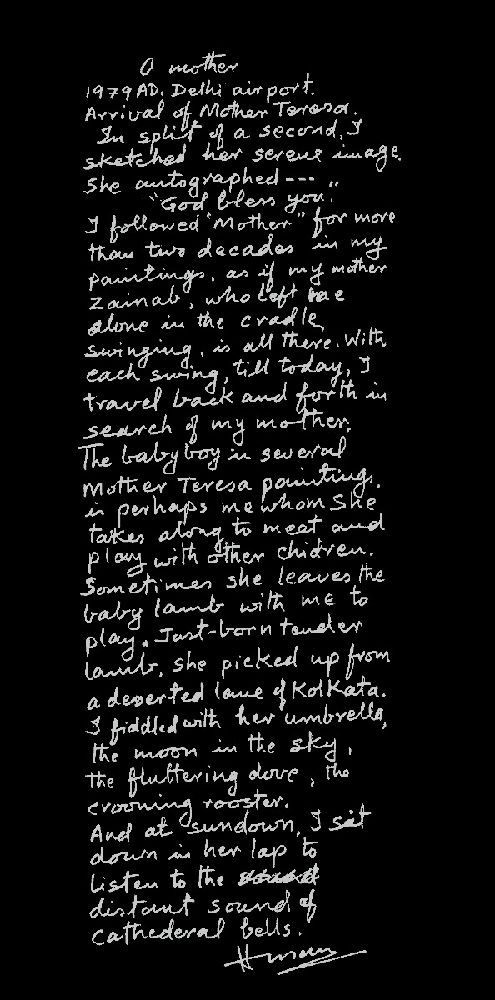 A mother
1979 AD. Delhi airport.
Arrival of Mother Teresa.
In split of a second, I
sketched her serene image.
She autographed ---
"God bless you."
I followed "Mother" for more
than two decades in my
paintings, as if my mother
Zainab, who left me
alone in the cradle
swinging, is all there. With
each swing, till today, I
travel back and forth in
search of my mother.
The baby boy in several
Mother Teresa paintings.
is perhaps me whom She
takes along to meet and
play with other chidren.
Sometimes she leaves the
baby lamb with me to
play. Just-born tender
lamb, she picked up from
a deserted lane of Kolkata.
I fiddled with her umbrella,
the moon in the sky,
the fluttering dove, the
crooning rooster.
And at sundown, I sit
down in her lap to
listen to the
distant sound of
cathederal bells.
Husain